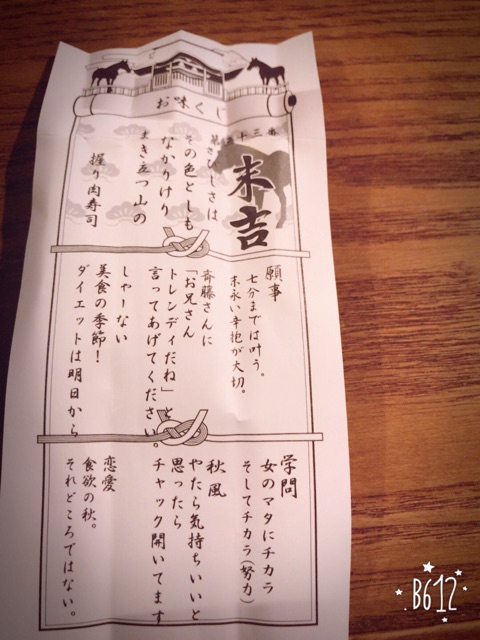 お味くじ
第五十三番
末吉
さびしさは
その色としも
なかりけり
まき立つ山の
握り肉寿司
願事
七分までは叶う。
末永い辛抱が大切。
斉藤さんに
「お兄さん
トレンディだね」と
言ってあげてください。
しゃーない
美食の季節！
ダイエットは明日から
学問
女のマタにチカラ
そしてチカラ(努力)
秋風
やたら気持ちいいと
思ったら
チャック開いてます
恋愛
食欲の秋。
それどころではない。
B612